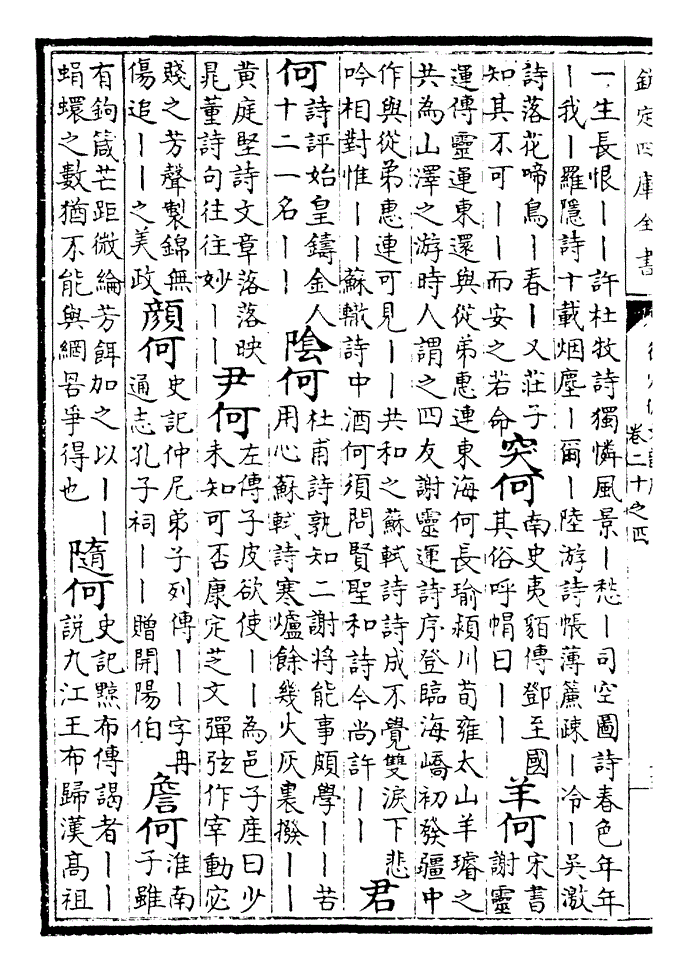 欽定四庫全書
卷二十之四
一生長恨丨丨許杜牧詩獨憐風景丨愁丨司空圖詩春色年年
丨我丨羅隱詩十載烟塵丨爾丨陸游詩帳薄簾疎丨冷丨吳激
詩落花啼鳥丨春丨又莊子
知其不可丨丨而安之若命
突何
南史夷貊傳鄧至國
其俗呼帽曰丨丨
羊何
宋書
謝靈
運傳靈運東還與從弟惠連東海何長瑜潁川荀雍太山羊璿之
共為山澤之游時人謂之四友謝靈運詩序登臨海嶠初發疆中
作與從弟惠連可見丨丨共和之蘇軾詩詩成不覺雙淚下悲
吟相對惟丨丨蘇轍詩中酒何須問賢聖和詩今尚許丨丨
君
何
詩評始皇鑄金人
十二一名丨丨
陰何
杜甫詩孰知二謝將能事頗學丨丨苦
用心蘇軾詩寒爐餘幾火灰裏撥丨丨
黃庭堅詩文章落落映
晁董詩句往往妙丨丨
尹何
左傳子皮欲使丨丨為邑子產曰少
未知可否康定芝文彈弦作宰動宓
賤之芳聲製錦無
傷追丨丨之美政
顔何
史記仲尼弟子列傳丨丨字冉
通志孔子祠丨丨贈開陽伯
詹何
淮南
子雖
有鉤箴芒距微綸芳餌加之以丨丨
蜎蠉之數猶不能與網罟爭得也
隨何
史記黥布傳謁者丨丨
說九江王布歸漢高祖